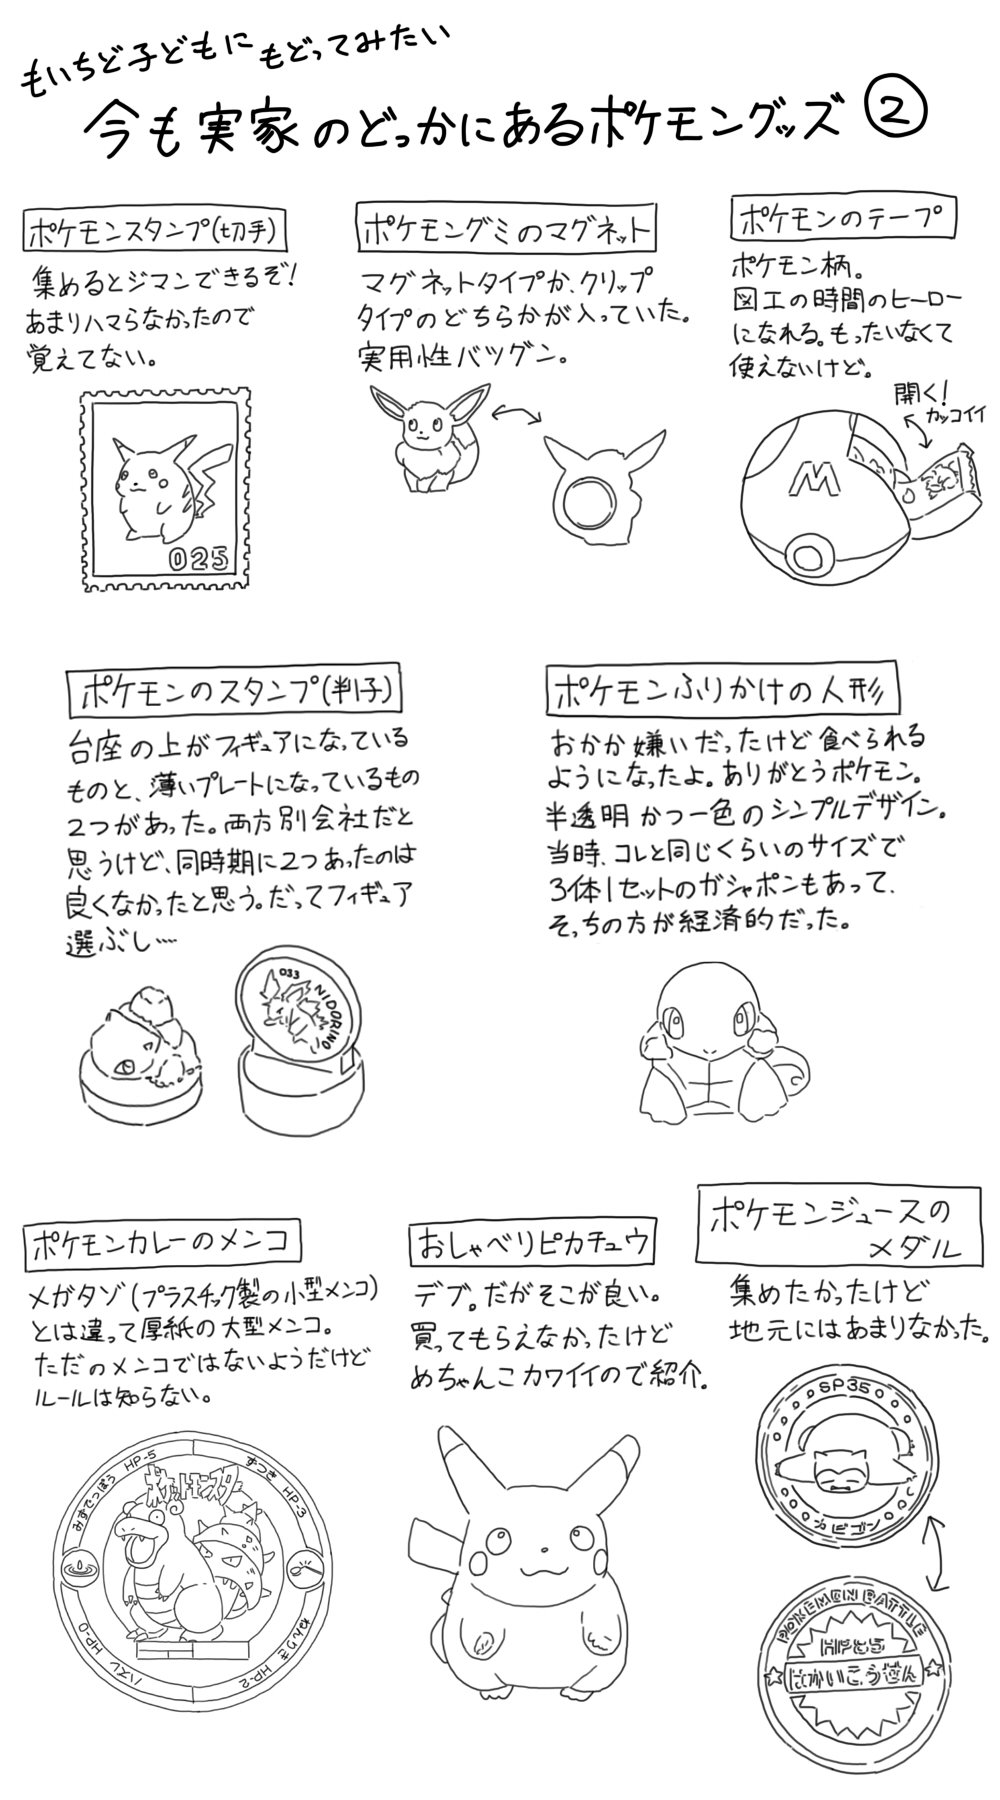 もいちど子どもにもどってみたい
今も実家のどっかにあるポケモングッズ②
ポケモンスタンプ(切手)
集めるとジマンできるぞ!
あまりハマらなかったので
覚えてない。
025
ポケモングミのマグネット
マグネットタイプか、クリップ
タイプのどちらかが入っていた。
実用性バツグン。
ポケモンのテープ
ポケモン柄。
図工の時間のヒーロー
になれる。もったいなくて
使えないけど。
開く!
カッコイイ
M
ポケモンのスタンプ(判子)
台座の上がフィギュアになっている
ものと、薄いプレートになっているもの
2つがあった。両方別会社だと
思うけど、同時期に2つあったのは
良くなかったと思う。だってフィギュア
選ぶし…
033 NIDORINO
ポケモンふりかけの人形
おかか嫌いだったけど食べられる
ようになったよ。ありがとうポケモン。
半透明かつ一色のシンプルデザイン。
当時、コレと同じくらいのサイズで
3体1セットのガシャポンもあって、
そっちの方が経済的だった。
ポケモンカレーのメンコ
メガタゾ(プラスチック製の小型メンコ)
とは違って厚紙の大型メンコ。
ただのメンコではないようだけど
ルールは知らない。
みずでっぽう HP-5
ずつき HP-3
ポケットモンスター
ハズレ HP-0
ねんりき HP-2
おしゃべりピカチュウ
デブ。だがそこが良い。
買ってもらえなかったけど
めちゃんこカワイイので紹介。
ポケモンジュースの
メダル
集めたかったけど
地元にはあまりなかった。
SP35
カビゴン
POKEMON BATTLE
HP65
はかいこうせん